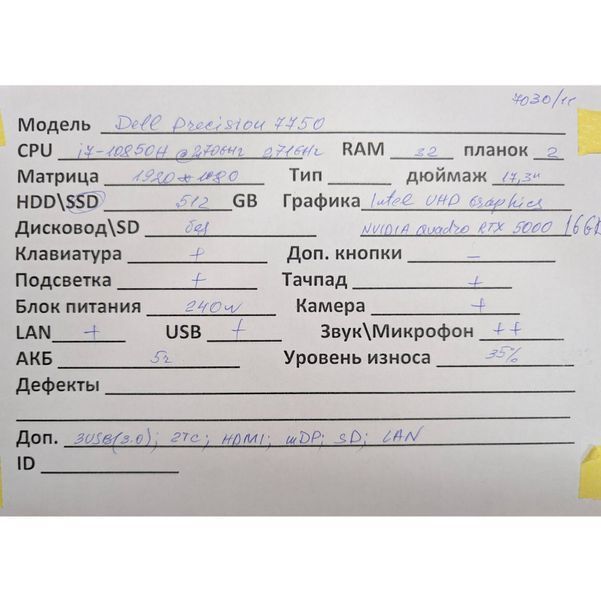 7030/11
Модель Dell Precision 7750
CPU i7-10850H @ 2,70GHz 2,71GHz RAM 32 планок 2
Матрица 1920*1080 Тип дюймаж 17,3"
HDD\SSD 512 GB Графика Intel UHD Graphics
Дисковод\SD без NVIDIA Quadro RTX 5000 16Gb
Клавиатура + Доп. кнопки –
Подсветка + Тачпад +
Блок питания 240W Камера +
LAN + USB + Звук\Микрофон ++
АКБ 5ч Уровень износа 35%
Дефекты
Доп. 3USB(3.0); 2TC; HDMI; mDP; SD; LAN
ID